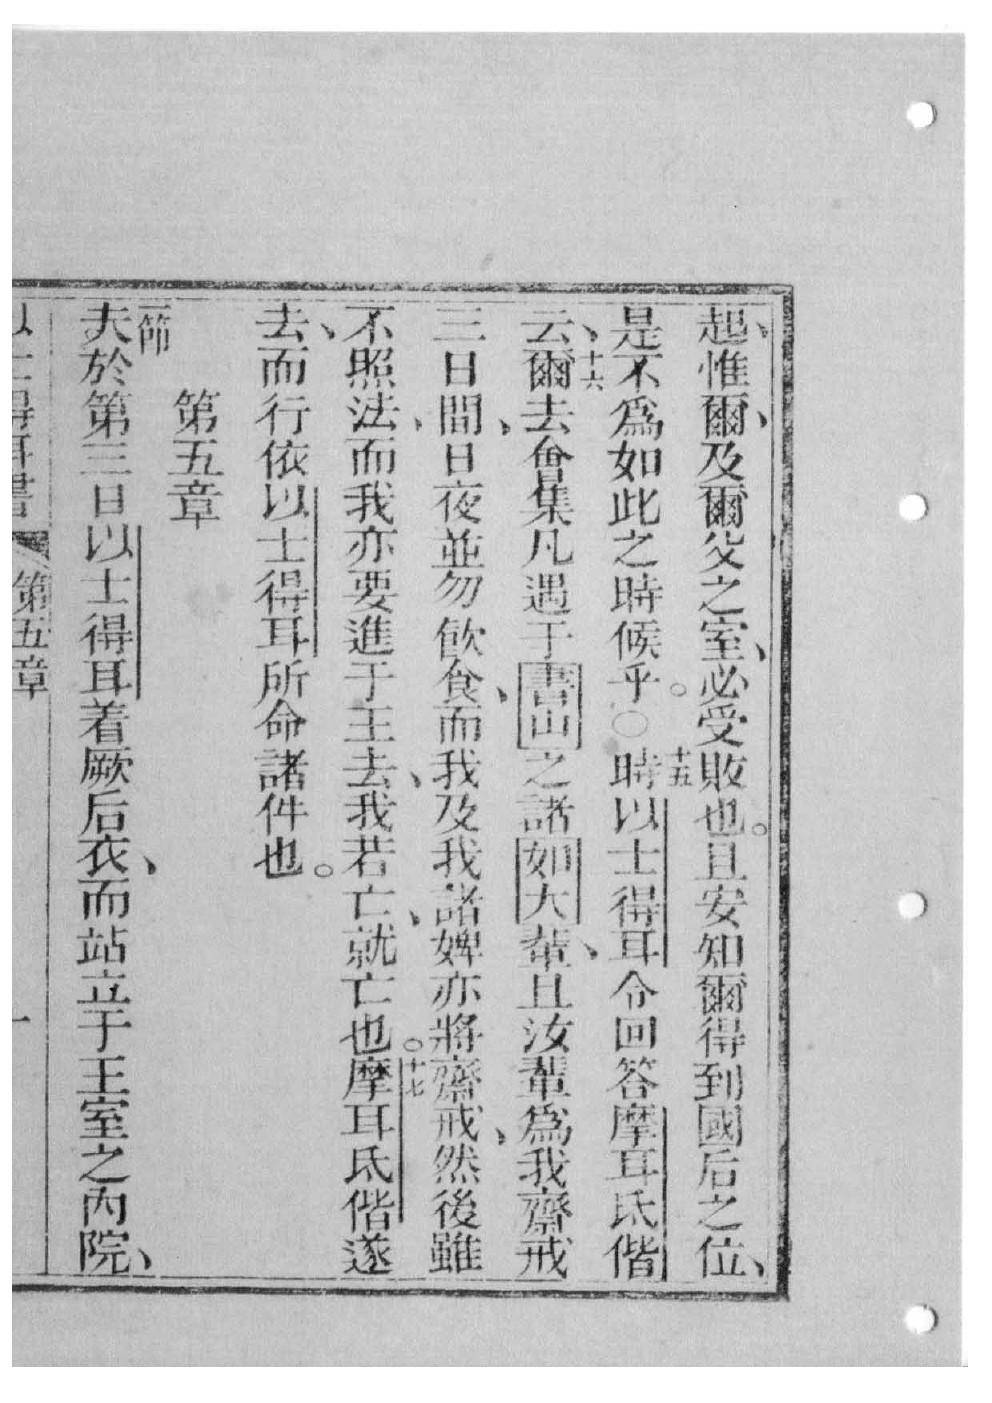 起、惟爾、及爾父之室、必受敗也。且安知爾得到國后之位、
是不爲如此之時候乎。○十五時以士得耳令回答摩耳氐偕
云、十六爾去會集凡遇于書山之諸如大輩、且汝輩爲我齋戒
三日間、日夜並勿飲食、而我及我諸婢亦將齋戒、然後雖
不照法、而我亦要進于王去、我若亡、就亡也。十七摩耳氐偕遂
去、而行依以士得耳所命諸件也。
第五章
一節夫於第三日以士得耳着厥后衣、而站立于王室之內院、
以士得耳書 第五章